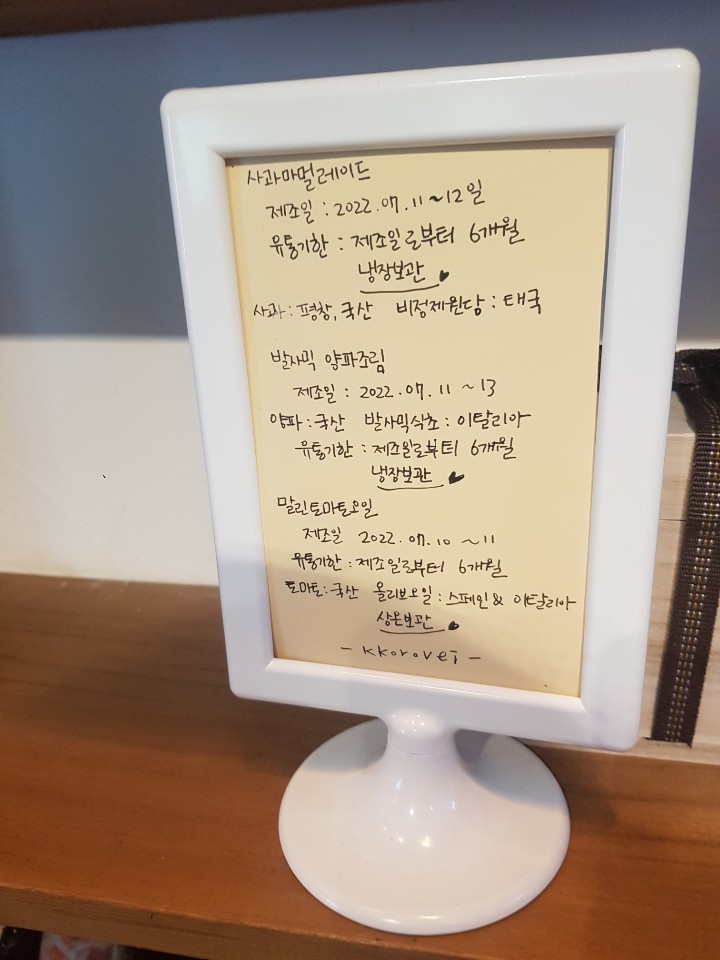 사과마멀레이드
제조일 : 2022.07.11 ~12일
유통기한 : 제조일로부터 6개월
냉장보관
사과 : 평창, 국산 비정제원당 : 태국
발사믹 양파조림
제조일 : 2022.07.11 ~13
양파 : 국산 발사믹식초 : 이탈리아
유통기한 : 제조일로부터 6개월
냉장보관
말린토마토오일
제조일 2022.07.10 ~11
유통기한 : 제조일로부터 6개월
토마토 : 국산 올리브오일 : 스페인 & 이탈리아
상온보관
- kkorovei -